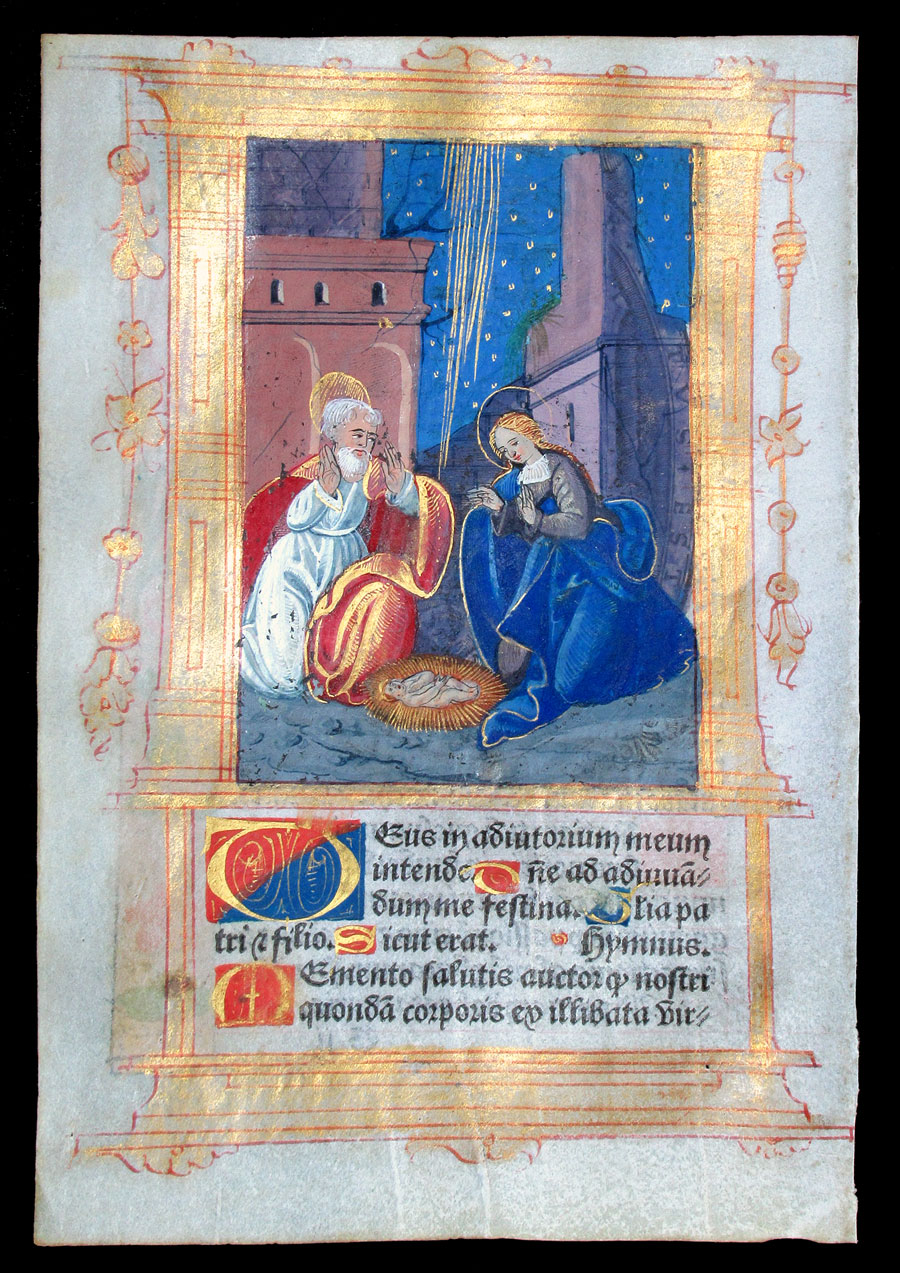 Deus in adiutorium meum
intende. Dñe ad adiuuã⸗
dum me festina. Glia pa
tri ⁊ filio. Sicut erat. Hymnus.
Memento salutis auctor ꝙ nostri
quondã corporis ex illibata vir⸗